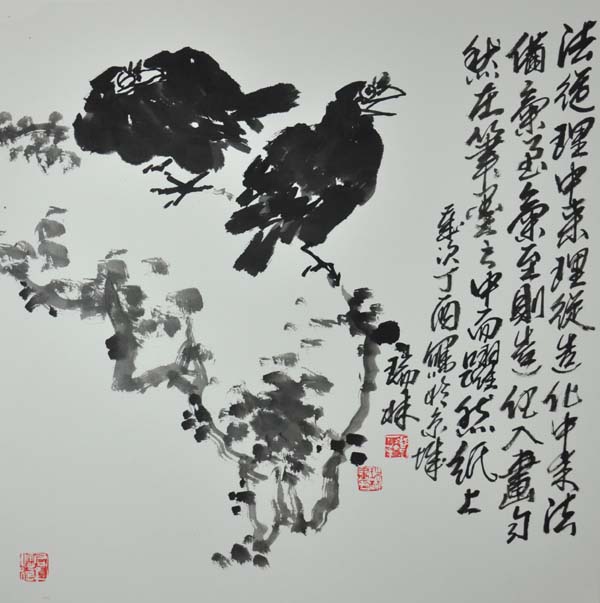 法從理中來理從造化中來法
備氣至氣至則造化入畫自
然在筆墨之中而躍然紙上
歲次丁酉寫於京城
瑞林